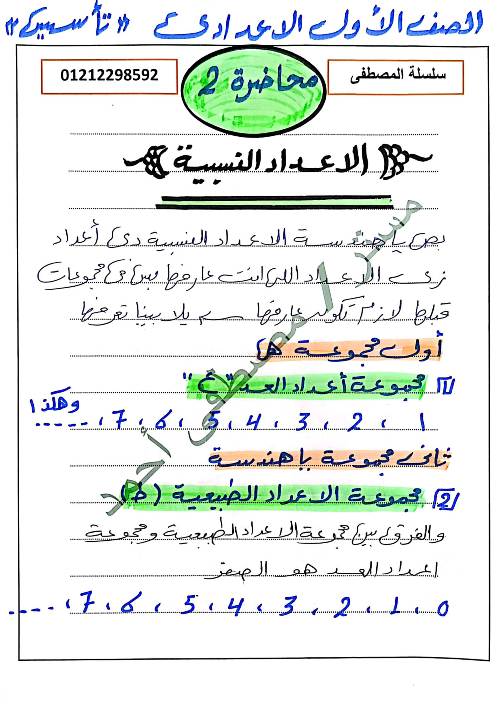 الصف الأول الاعدادى "تأسيس"
سلسلة المصطفى
محاضرة 2
01212298592
الاعداد النسبية
بص يا هندسة الاعداد النسبية دى أعداد
زى الاعداد اللى انت عارفها بس فى مجموعات
قبلها لازم تكون عارفها يلا بينا نعرفها
أول مجموعة ها
[1] مجموعة أعداد العد "ع"
1 ، 2 ، 3 ، 4 ، 5 ، 6 ، 7 ، ..... وهكذا
ثانى مجموعة يا هندسة
[2] مجموعة الاعداد الطبيعية (ط)
والفرق بين مجموعة الاعداد الطبيعية ومجموعة
اعداد العد هو الصفر
0 ، 1 ، 2 ، 3 ، 4 ، 5 ، 6 ، 7 ، ....
مستر / مصطفى أحمد